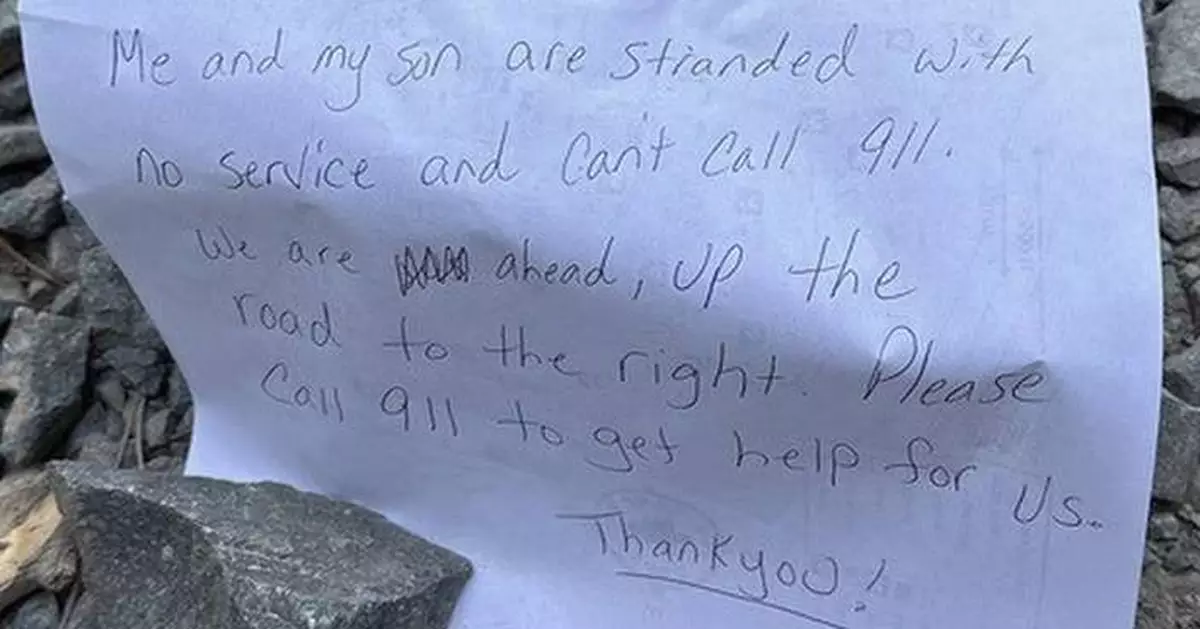 Me and my son are stranded with
no service and Can't Call 911.
We are ahead, up the
road to the right. Please
Call 911 to get help for Us.
Thankyou!